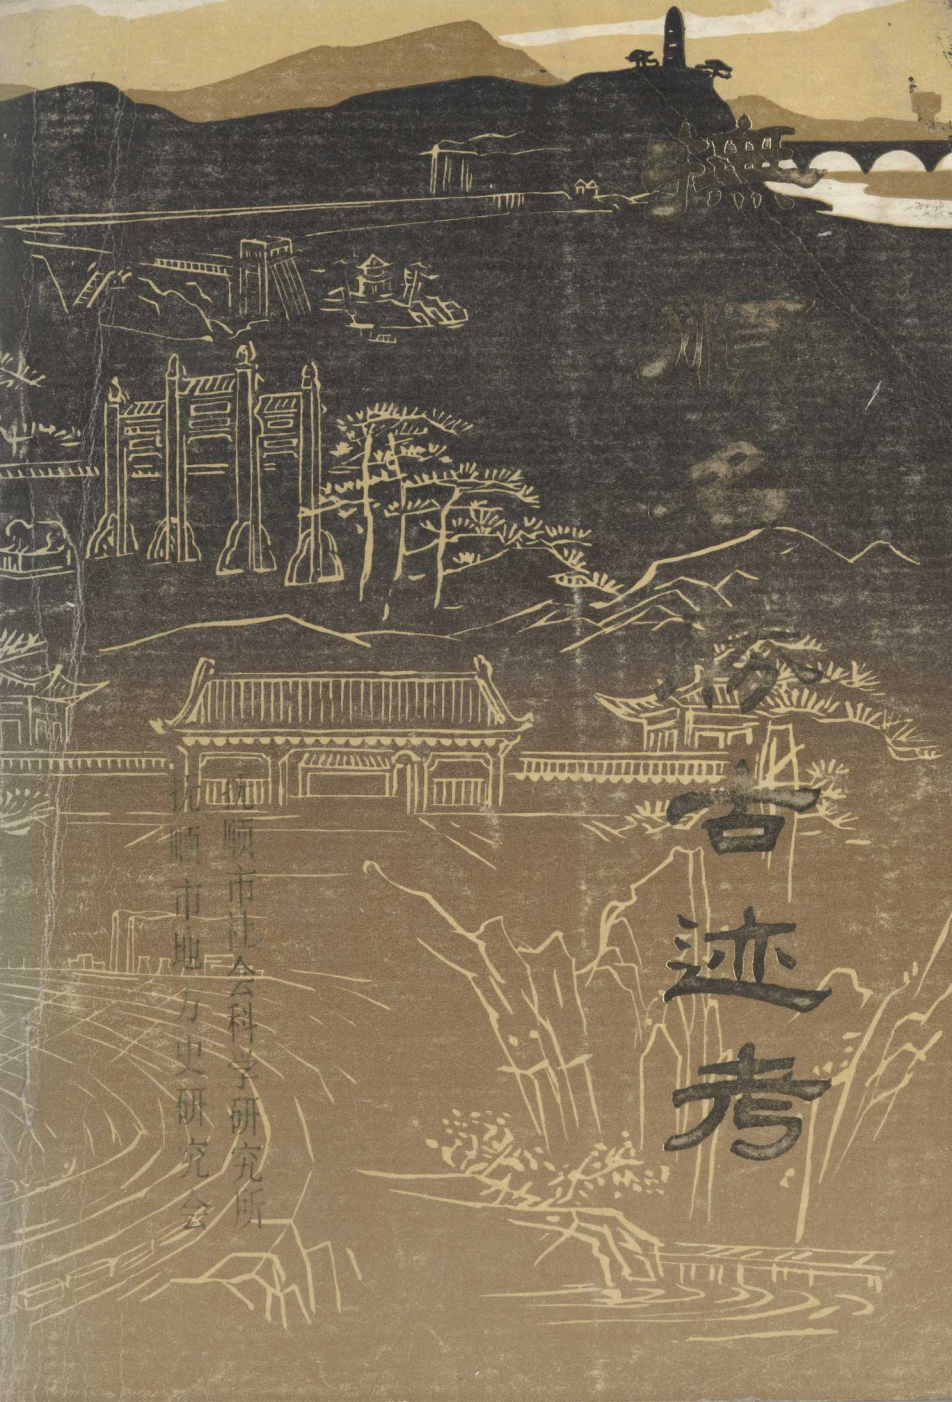 撫顺名胜古迹考
抚顺市社会科学研究所
抚顺市地方史研究会